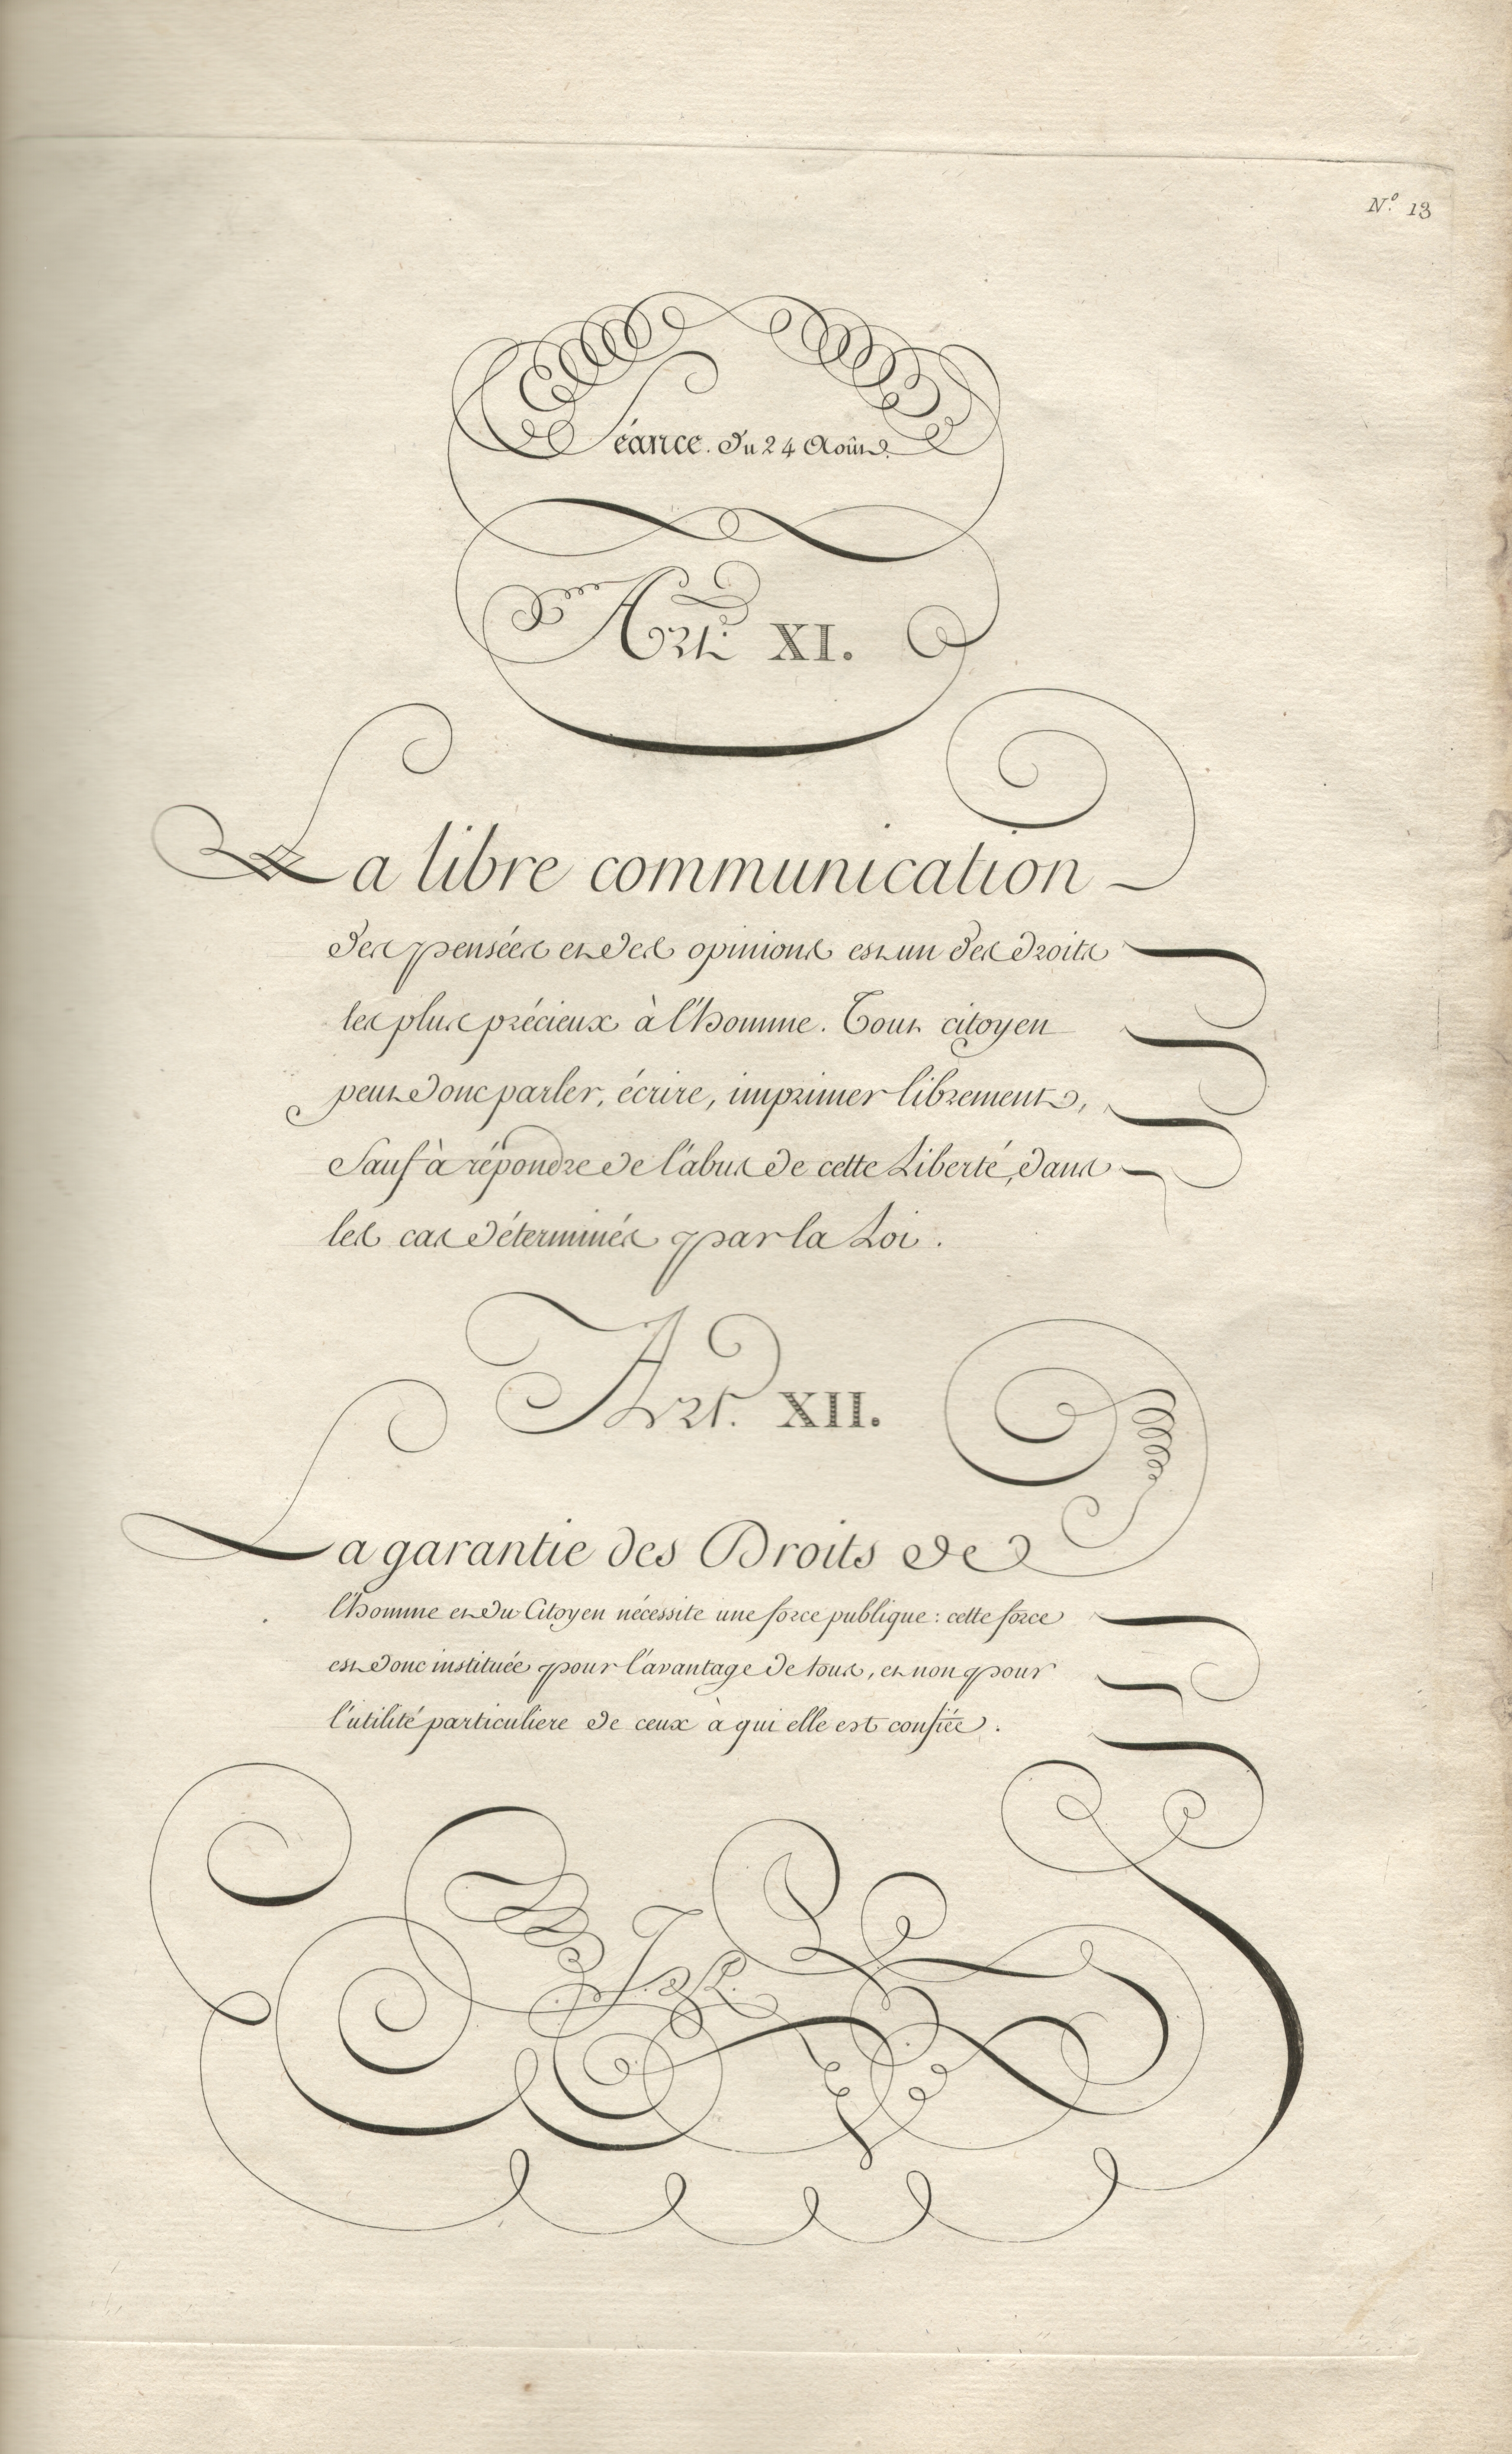 N.º 13
Séance. du 24 Août.
Art. XI.
La libre communication
des pensées et des opinions est un des droits
les plus précieux à l'homme. Tout citoyen
peut donc parler, écrire, imprimer librement,
Sauf à répondre de l'abus de cette Liberté, dans
les cas déterminés par la Loi.
Art. XII.
La garantie des Droits de
l'homme et du Citoyen nécessite une force publique : cette force
est donc instituée pour l'avantage de tous, et non pour
l'utilité particuliere de ceux à qui elle est confiée.